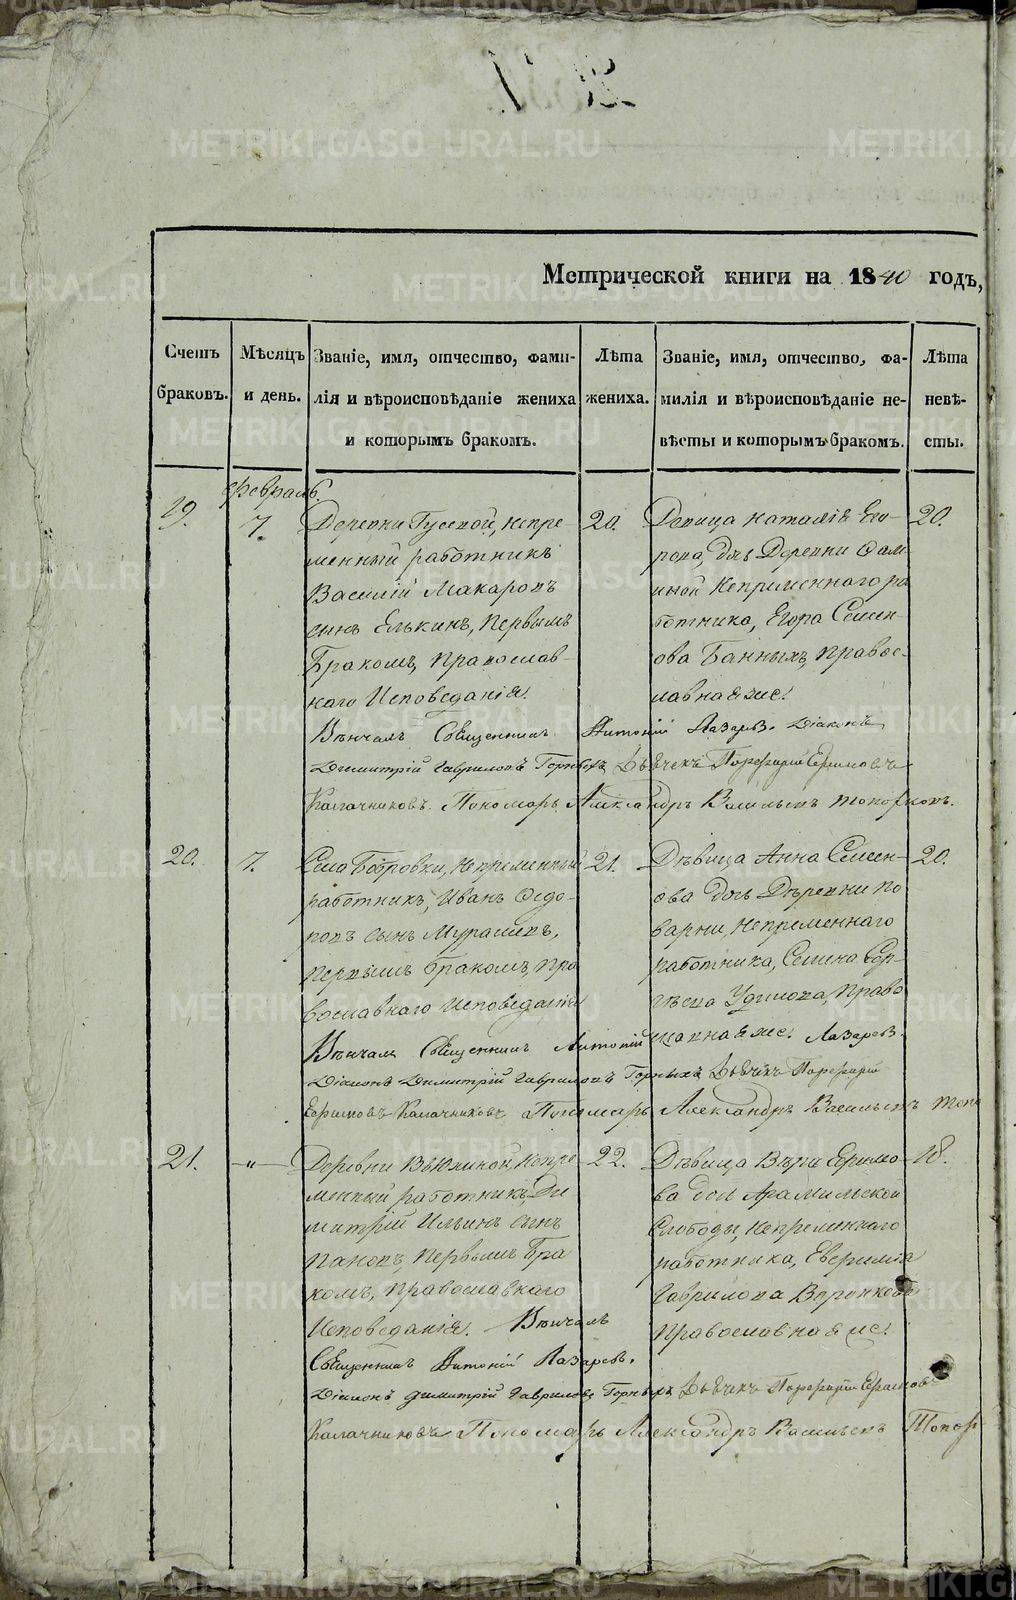 Метрической книги на 1840 годъ,
Счетъ браковъ.
Мѣсяцъ и день.
Званіе, имя, отчество, фами-
лія и вѣроисповѣданіе жениха
и которымъ бракомъ.
Лѣта жениха.
Званіе, имя, отчество, фа-
милія и вѣроисповѣданіе не-
вѣсты и которымъ бракомъ.
Лѣта невѣ-
сты.
февраль.
19.
7.
Деревни Гусевой, непре-
менный работникъ
Василій Макаровъ
сынъ Елькинъ, первымъ
бракомъ, православ-
наго исповеданія.
20.
Девица Наталія Его-
рова, дчь Деревни Фом-
иной непременнаго ра
ботника, Егора Семен-
ова Банныхъ, правос-
лавная же.
20.
Вѣнчалъ Священникъ Антоній Лазаревъ. Діаконъ
Димитрій Гавриловъ Горныхъ, Дьячекъ Порфирій Ефимовъ
Калачниковъ. Пономарь Александръ Васильевъ Топорковъ.
20.
7.
Села Бобровки, непременный
работникъ, Иванъ Федо-
ровъ сынъ Мурашевъ,
первымъ бракомъ, пра
вославнаго исповеданія
21.
Дѣвица Анна Семен-
ова дочь Деревни По
варни, непременнаго
работника, Семена Сер-
гѣева Удилова, право
славная же.
20.
Вѣнчалъ Священникъ Антоній Лазаревъ.
Діаконъ Димитрій Гавриловъ Горныхъ Дьячекъ Порфирій
Ефимовъ Калачниковъ Пономарь Александръ Васильевъ Топо
21.
—"—
Деревни Вьюхиной, непре
менный работникъ, Ди
митрій Ильинъ сынъ
Пановъ, первымъ бра
комъ, православнаго
исповеданія. Вѣнчалъ
22.
Дѣвица Вѣра Ефимо-
ва дочь Арамильской
Слободы, непременнаго
работника, Евфимія
Гаврилова Воронкова
православная же.
18.
Священникъ Антоній Лазаревъ.
Діаконъ Димитрій Гавриловъ Горныхъ Дьячекъ Порфирій Ефимовъ
Калачниковъ Пономарь Александръ Васильевъ Топор
METRIKI.GASO-URAL.RU